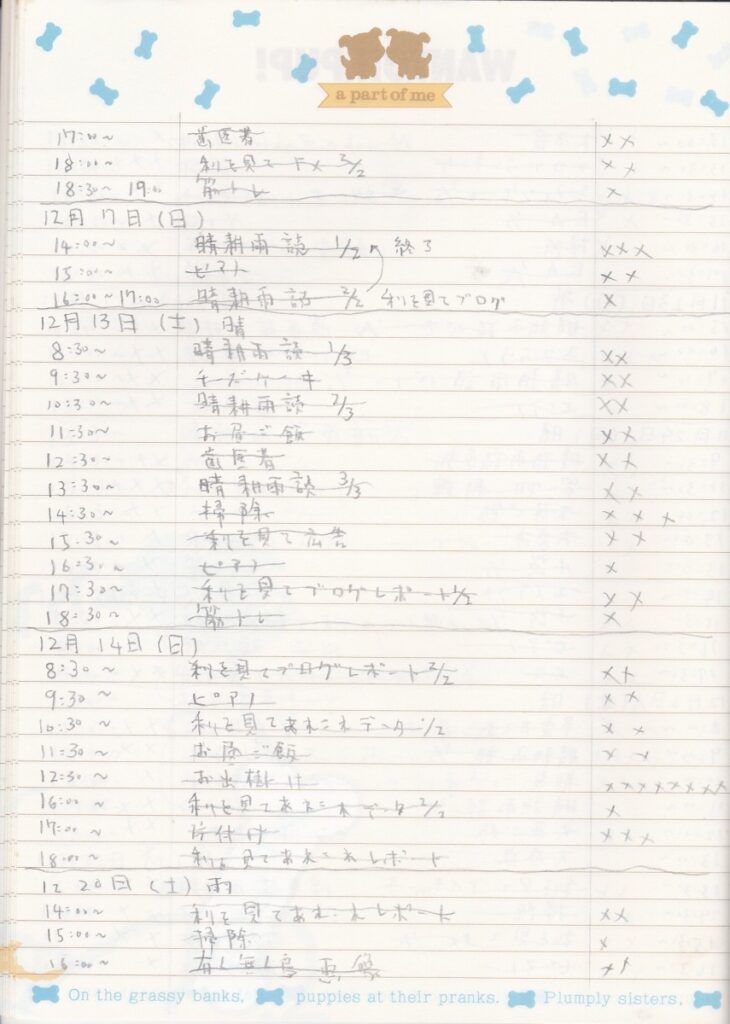 a part of me
17:00~ 歯医者 ××
18:00~ 利を見て 2/2 ××
18:30~ 19:00 筋トレ ×
12月7日(日)
14:00~ 晴耕雨読 1/2 終了 ×××
15:00~ ピアノ ××
16:00~17:00 晴耕雨読 2/2 利を見てブログ ×
12月13日(土) 晴
8:30~ 晴耕雨読 1/3 ××
9:30~ チーズケーキ ××
10:30~ 晴耕雨読 2/3 ××
11:30~ お昼ご飯 ××
12:30~ 歯医者 ××
13:30~ 晴耕雨読 3/3 ××
14:30~ 掃除 ×××
15:30~ 利を見て広告 ××
16:30~ ピアノ ×
17:30~ 利を見てブログレポート 1/2 ××
18:30~ 筋トレ ×
12月14日(日)
8:30~ 利を見てブログレポート 2/2 ××
9:30~ ピアノ ××
10:30~ 利を見てあれこれデータ 1/2 ××
11:30~ お昼ご飯 ××
12:30~ お出掛け ××××××××
16:00~ 利を見てあれこれデータ 2/2 ×
17:00~ 片付け ×××
18:00~ 利を見てあれこれレポート
12 20日(土) 雨
14:00~ 利を見てあれこれレポート ××
15:00~ 掃除 ×
16:00~
On the grassy banks. puppies at their pranks. Plumply sisters.